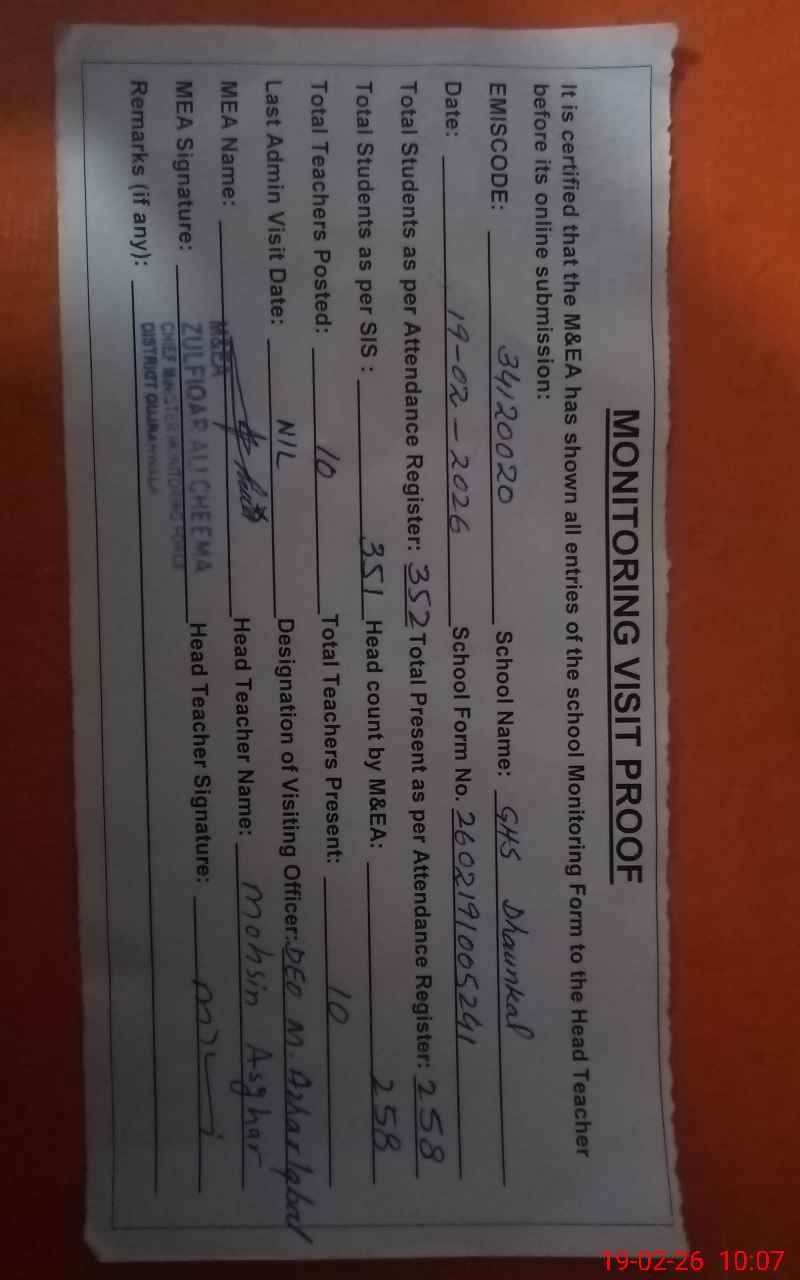 MONITORING VISIT PROOF
It is certified that the M&EA has shown all entries of the school Monitoring Form to the Head Teacher
before its online submission:
EMISCODE: 34120020 School Name: GHS Dhaunkal
Date: 19-02-2026 School Form No. 2602191005241
Total Students as per Attendance Register: 352 Total Present as per Attendance Register: 258
Total Students as per SIS : 351 Head count by M&EA: 258
Total Teachers Posted: 10 Total Teachers Present: 10
Last Admin Visit Date: NIL Designation of Visiting Officer: DEO M. Azhar Iqbal
MEA Name: Head Teacher Name: Mohsin Asghar
MEA Signature: Head Teacher Signature:
Remarks (if any):
M&EA
ZULFIQAR ALI CHEEMA
CHIEF MINISTER MONITORING FORCE
DISTRICT GUJRANWALA
19-02-26 10:07